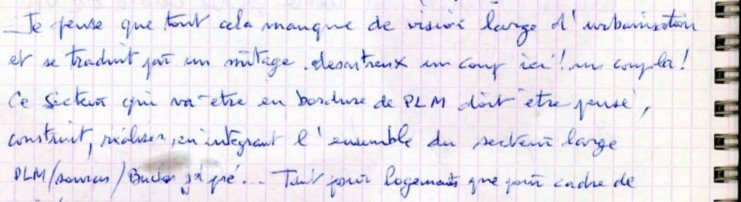 Je pense que tout cela manque de vision large d'urbanisation
et se traduit par un mitage desastreux un coup ici! un coup là!
Ce secteur qui va être en bordure de PLM doit être pensé,
construit, réaliser, en intégrant l'ensemble du secteur large
PLM/ / ... Tant pour logements que pour cadre de